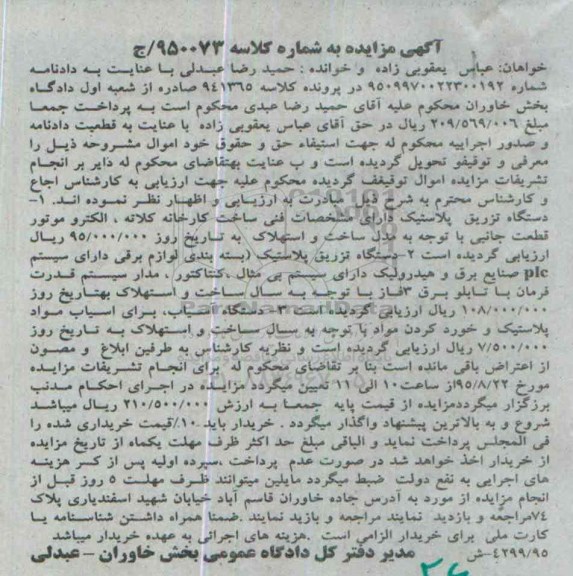 آگهی مزایده به شماره کلاسه ۹۵۰۰۷۳/ج
خواهان: عباس یعقوبی زاده و خوانده : حمید رضا عبدلی با عنایت به دادنامه
شماره ۹۵۰۹۹۷۰۰۲۲۳۰۰۱۹۲ در پرونده کلاسه ۹٤۱۳٦۵ صادره از شعبه اول دادگاه
بخش خاوران محکوم علیه آقای حمید رضا عبدی محکوم است به پرداخت جمعا
مبلغ ۲۰۹/۵٦۹/۰۰٦ ریال در حق آقای عباس یعقوبی زاده با عنایت به قطعیت دادنامه
و صدور اجراییه محکوم له جهت استیفاء حق و حقوق خود اموال مشروحه ذیل را
معرفی و توقیفو تحویل گردیده است و ب عنایت بهتقاضای محکوم له دایر بر انجام
تشریفات مزایده اموال توقیغف گردیده محکوم علیه جهت ارزیابی به کارشناس اجاع
و کارشناس محترم به شرح ذیل مبادرت به ارزیابی و اظهار نظر نموده اند. ۱-
دستگاه تزریق پلاستیک دارای مشخصات فنی ساخت کارخانه کلاته ، الکترو موتور
قطعت جانبی با توجه به مدل ساخت و استهلاک به تاریخ روز ۹۵/۰۰۰/۰۰۰ ریال
ارزیابی گردیده است ۲-دستگاه تزریق پلاستیک (بسته بندی لوازم برقی دارای سیستم
plc صنایع برق و هیدرولیک دارای سیستم بی متال ،کنتاکتور ، مدار سیستم قدرت
فرمان با تابلو برق ۳فاز با توجه به سال ساخت و استهلاک بهتاریخ روز
۱۰۸/۰۰۰/۰۰۰ ریال ارزیابی گردیده است ۳- دستگاه آسیاب، برای اسیاب مواد
پلاستیک و خورد کردن مواد با توجه به سال ساخت و استهلاک به تاریخ روز
۷/۵۰۰/۰۰۰ ریال ارزیابی گردیده است و نظریه کارشناس به طرفین ابلاغ و مصون
از اعتراض باقی مانده است بنا بر تقاضای محکوم له برای انجام تشریفات مزایده
مورخ ۹۵/۸/۲۲از ساعت۱۰ الی ۱۱ تعیین میگردد مزایده در اجرای احکام مدنب
برگزار میگرددمزایده از قیمت پایه جمعا به ارزش ۲۱۰/۵۰۰/۰۰۰ ریال میباشد
شروع و به بالاترین پیشنهاد واگذار میگردد . خریدار باید ۱۰٪قیمت خریداری شده را
فی المجلس پرداخت نماید و الباقی مبلغ حد اکثر ظرف مهلت یکماه از تاریخ مزایده
از خریدار اخذ خواهد شد در صورت عدم پرداخت ،سپرده اولیه پس از کسر هزینه
های اجرایی به نفع دولت ضبط میگردد مایلین میتوانند ظرف مهلت ۵ روز قبل از
انجام مزایده از مورد به آدرس جاده خاوران قاسم آباد خیابان شهید اسفندیاری پلاک
۷٤مراجعه و بازدید نمایند مراجعه و بازید نمایند .ضمنا همراه داشتن شناسنامه یا
کارت ملی برای خریدار الزامی است .هزینه های اجرائی به عهده خریدار میباشد
٤۲۹۹/۹۵-ش مدیر دفتر کل دادگاه عمومی بخش خاوران – عبدلی
۲۶